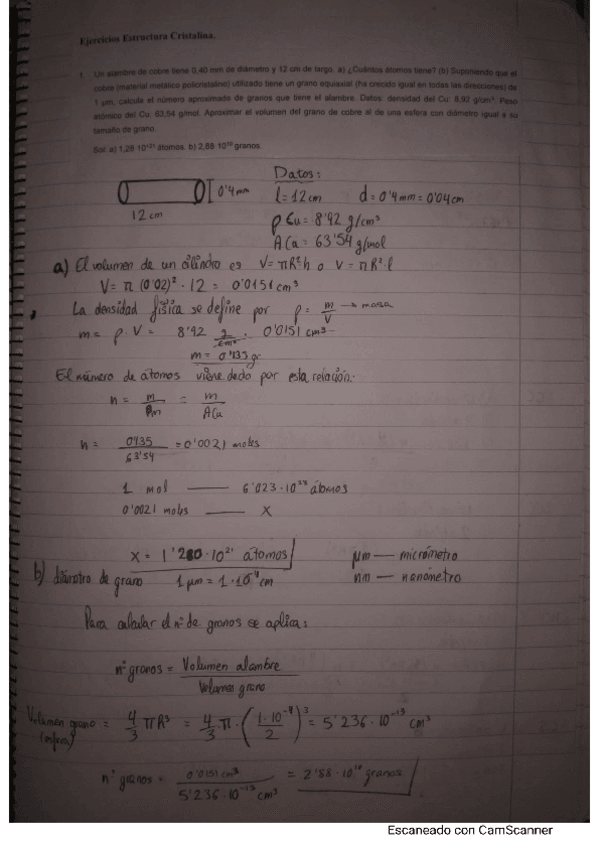 Ejercicios Estructura Cristalina.
1. Un alambre de cobre tiene 0,40 mm de diámetro y 12 cm de largo. a) ¿Cuántos átomos tiene? (b) Suponiendo que el
cobre (material metálico policristalino) utilizado tiene un grano equiaxial (ha crecido igual en todas las direcciones) de
1 µm, calcule el número aproximado de granos que tiene el alambre. Datos: densidad del Cu: 8,92 g/cm³. Peso
atómico del Cu: 63,54 g/mol. Aproximar el volumen del grano de cobre al de una esfera con diámetro igual a su
tamaño de grano.
Sol: a) 1,28·10²¹ átomos. b) 2,88·10¹⁰ granos.
Datos:
0'4 mm
l = 12 cm d = 0'4 mm = 0'04 cm
12 cm
ρ Cu = 8'92 g/cm³
A Cu = 63'54 g/mol
a) El volumen de un cilindro es V = πR²h o V = πR²·l
V = π (0'02)² · 12 = 0'0151 cm³
La densidad física se define por ρ = m/V → masa
m = ρ · V = 8'92 g/cm³ · 0'0151 cm³
m = 0'135 gr
El número de átomos viene dado por esta relación:
n = m/Pm = m/ACu
n = 0'135/63'54 = 0'0021 moles
1 mol — 6'023·10²³ átomos
0'0021 moles — X
X = 1'280·10²¹ átomos
µm — micrómetro
b) diámetro de grano 1 µm = 1·10⁻⁴ cm
nm — nanómetro
Para calcular el nº de granos se aplica:
nº granos = Volumen alambre / Volumen grano
Volumen grano (esfera) = 4/3 πR³ = 4/3 π · (1·10⁻⁴/2)³ = 5'236·10⁻¹³ cm³
nº granos = 0'0151 cm³ / 5'236·10⁻¹³ cm³ = 2'88·10¹⁰ granos
Escaneado con CamScanner